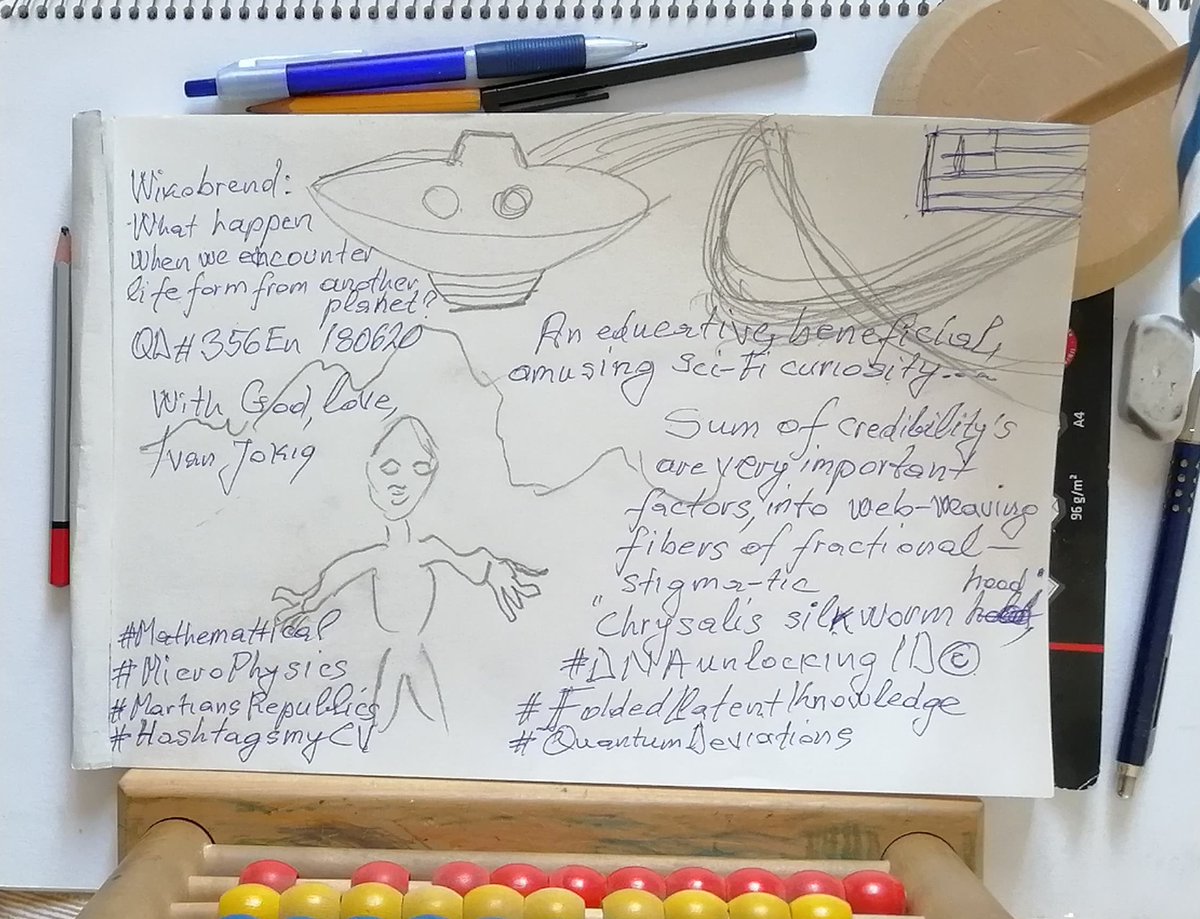 Wikobrend:
-What happen
when we encounter
life form from another
planet?
QD#356En 180620
With God, love,
Ivan Jokig
An educative, beneficial,
amusing Sci-Fi curiosity....
Sum of credibility's
are very important
factors, into web-weaving
fibers of fractional-
stigma-tic head"
"Chrysalis silkworm
#DNAunlocking ID©
#FoldedPatentKnowledge
#QuantumDeviations
#Mathemattical
#MicroPhysics
#MartiansRepublics
#HashtagsmyCV
A4
96 g/m²